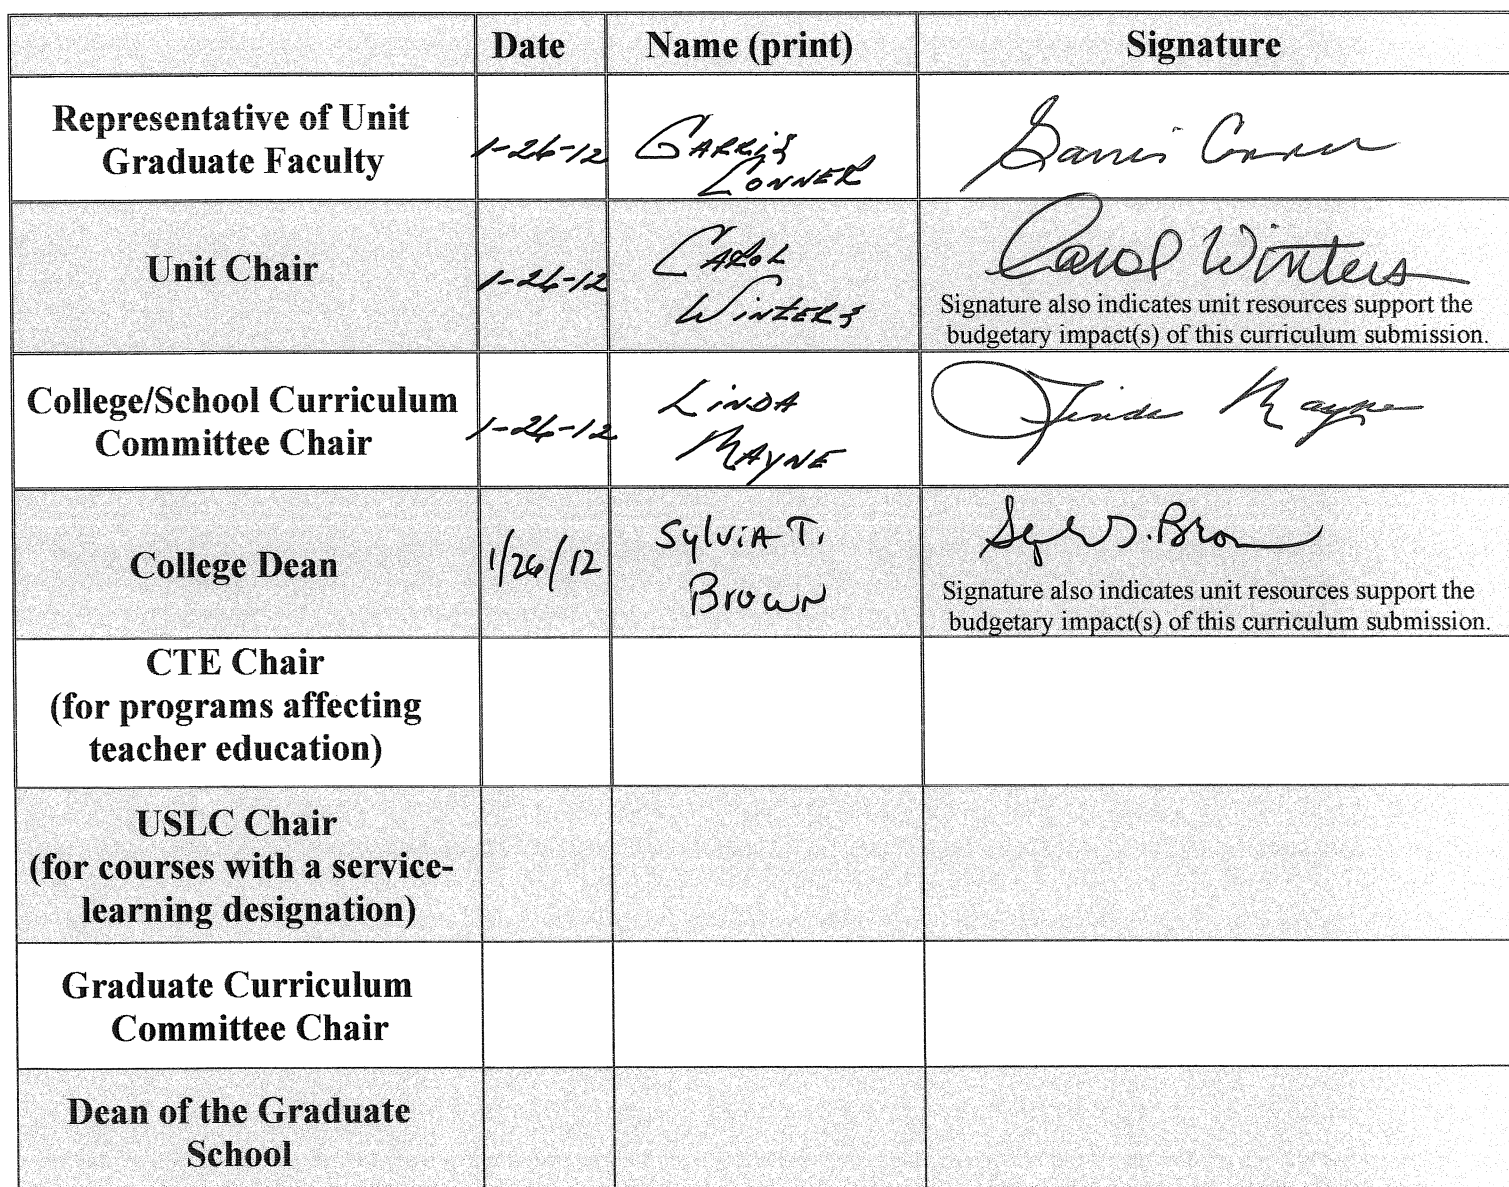 Date Name (print) Signature
Representative of Unit
Graduate Faculty
1-26-12
GARRIS
CONNER
Garris Conner
Unit Chair
1-26-12
CAROL
WINTERS
Carol Winters
Signature also indicates unit resources support the
budgetary impact(s) of this curriculum submission.
College/School Curriculum
Committee Chair
1-26-12
LINDA
MAYNE
Linda Mayne
College Dean
1/26/12
Sylvia T.
Brown
Sylvia T. Brown
Signature also indicates unit resources support the
budgetary impact(s) of this curriculum submission.
CTE Chair
(for programs affecting
teacher education)
USLC Chair
(for courses with a service-
learning designation)
Graduate Curriculum
Committee Chair
Dean of the Graduate
School